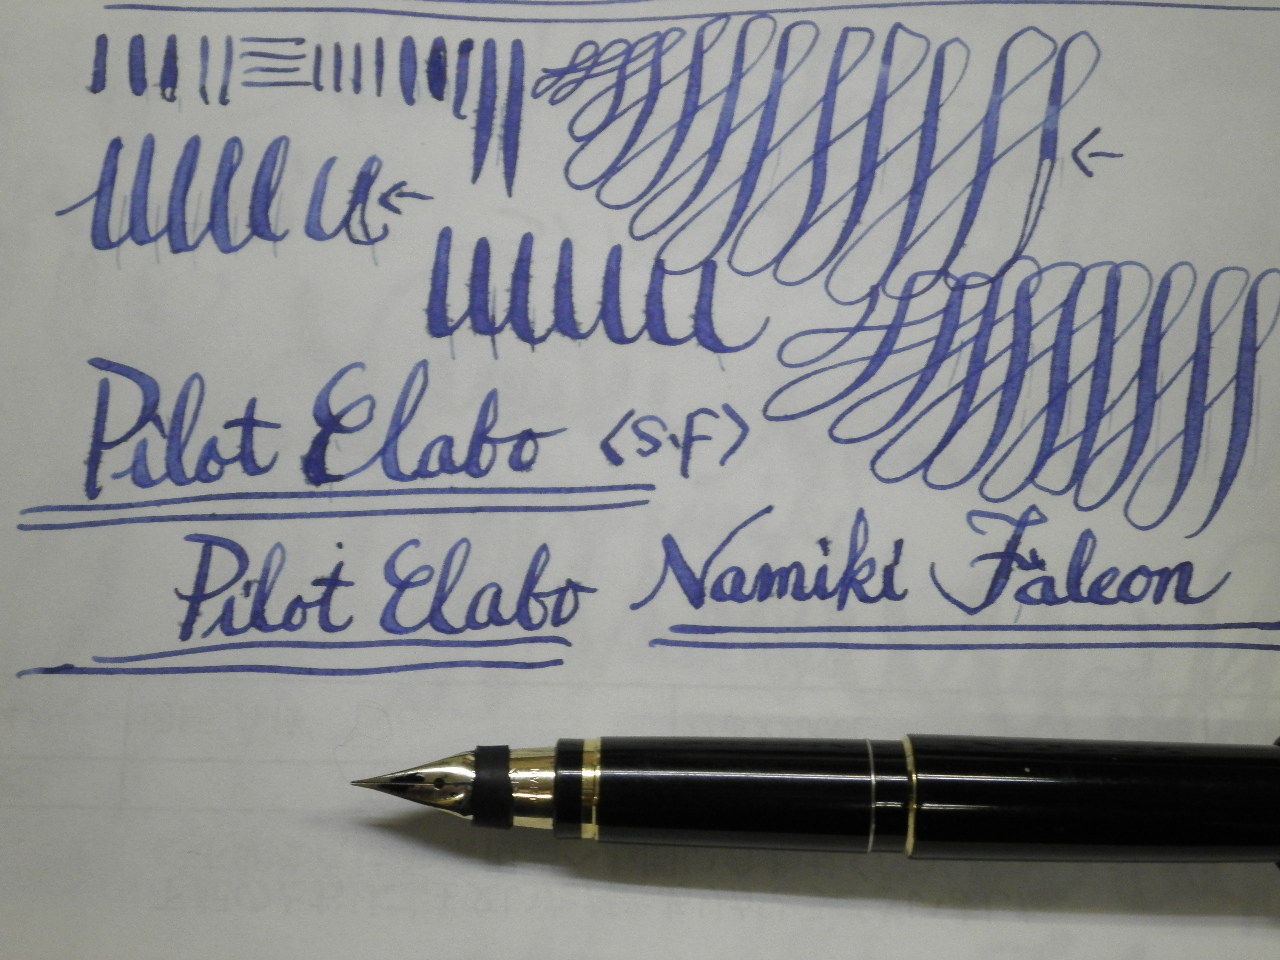 Pilot Elabo <S.F>
Pilot Elabo Namiki Falcon